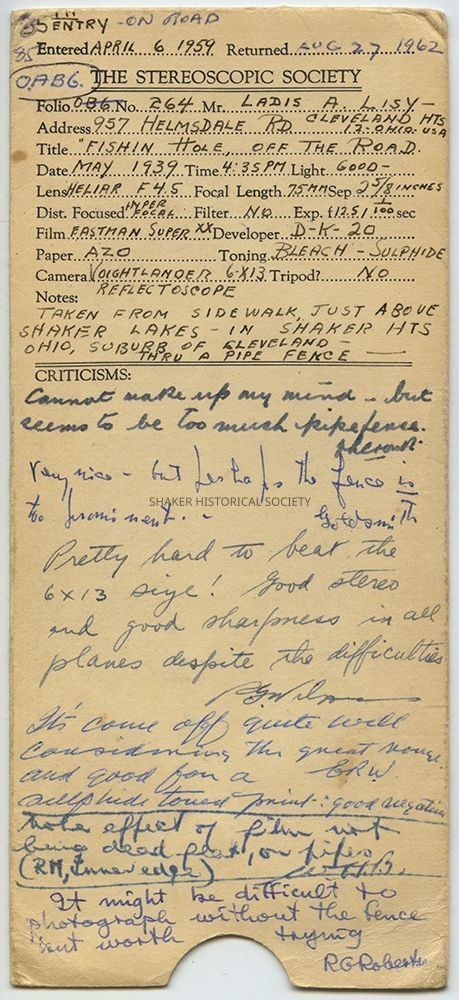 IN
ENTRY - ON ROAD
85
Entered APRIL 6 1959 Returned AUG 27 1962
O.A.B.G. THE STEREOSCOPIC SOCIETY
Folio O.B.G. No. 264 Mr. LADIS A. LISY-
Address 957 HELMSDALE RD. CLEVELAND HTS
12. OHIO. USA
Title "FISHIN HOLE, OFF THE ROAD.
Date MAY 1939 Time 4:35PM Light GOOD-
Lens HELIAR F4.5 Focal Length 75MM Sep 2 5/8 INCHES
Dist. Focused HYPER FOCAL Filter NO Exp. f12.5 1/100 sec
Film EASTMAN SUPER XX Developer D-K-20
Paper AZO Toning BLEACH - SULPHIDE
Camera VOIGHTLANDER 6X13 Tripod? NO
REFLECTOSCOPE
Notes:
TAKEN FROM SIDEWALK, JUST ABOVE
SHAKER LAKES - IN SHAKER HTS
OHIO, SUBURB OF CLEVELAND -
THRU A PIPE FENCE
CRITICISMS:
Cannot make up my mind - but
seems to be too much pipefense.
Very nice - but perhaps the fence is
SHAKER HISTORICAL SOCIETY
to prominent. - Goldsmith
Pretty hard to beat the
6x13 size! Good stereo
and good sharpness in all
planes despite the difficulties
It's come off quite well
considering the great range.
and good for a E.R.W.
sulphide toned print: good negative
Note effect of film not
being dead flat, on pipes
(RH, inner edge)
It might be difficult to
photograph without the fence
but worth trying
R G Roberts